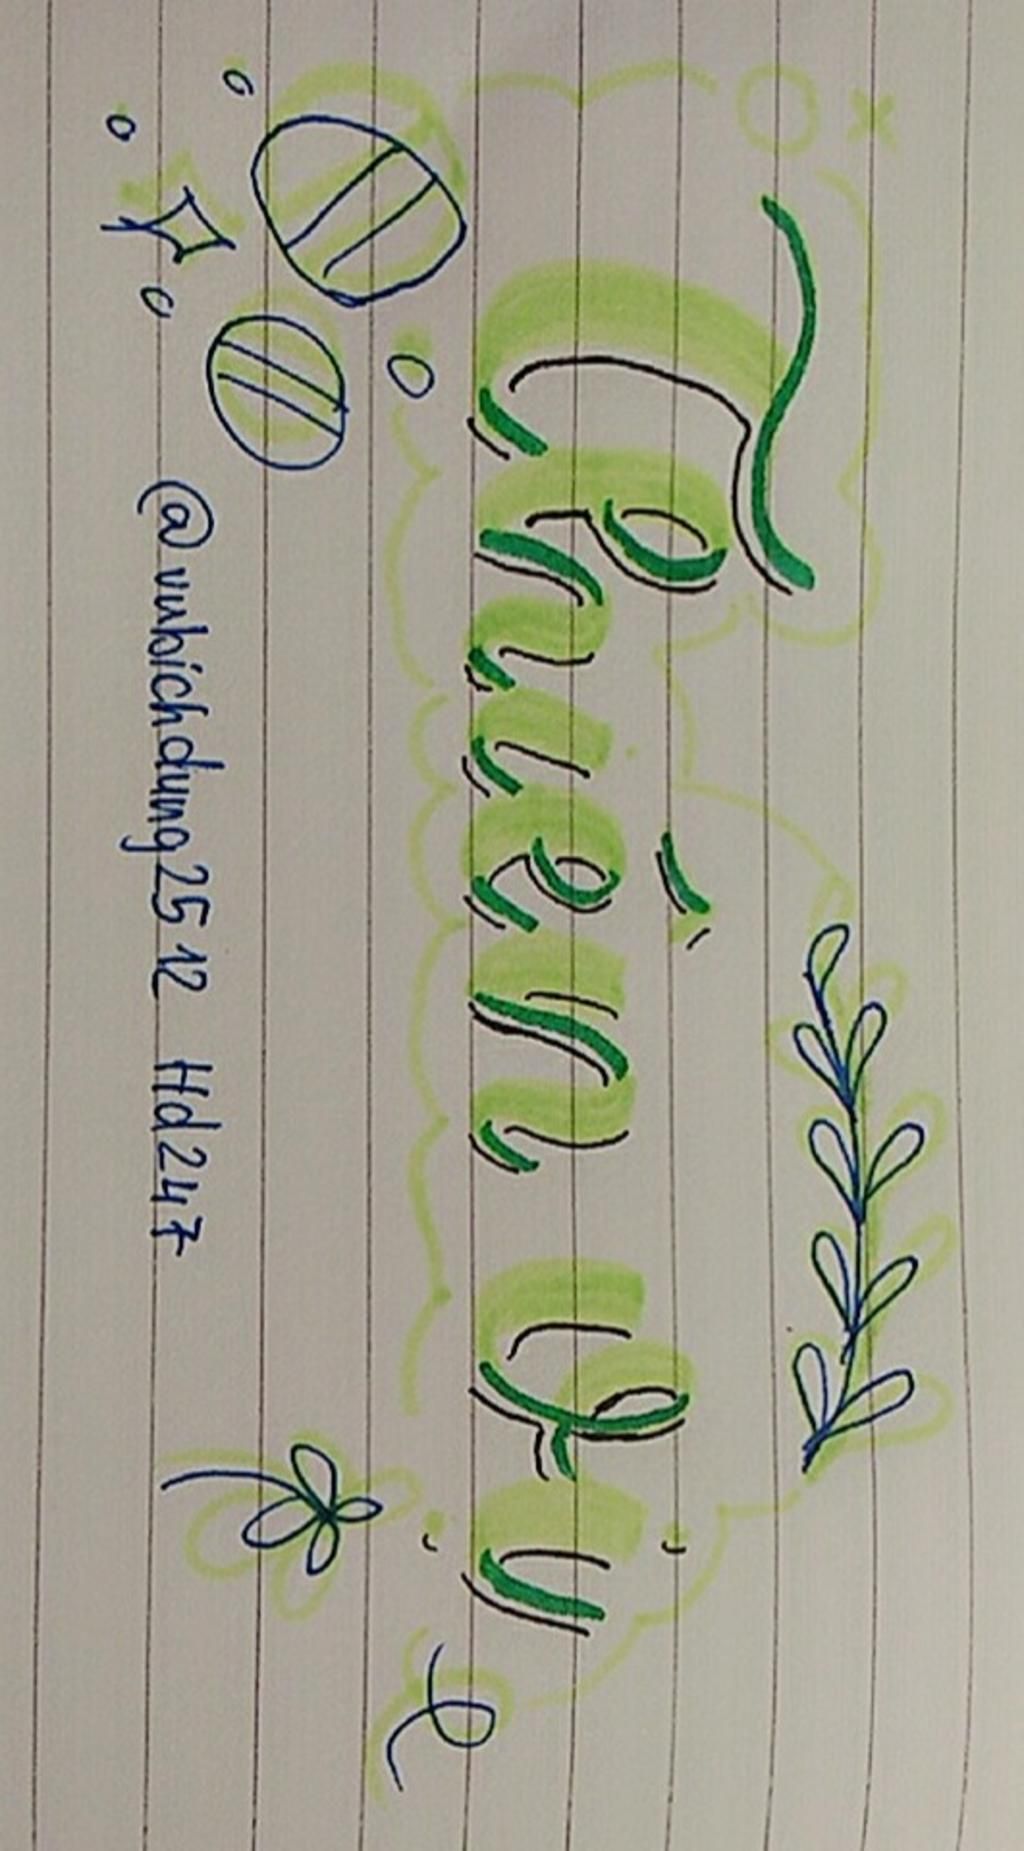 Thiên Vị
@vubichdung2512 Hd247